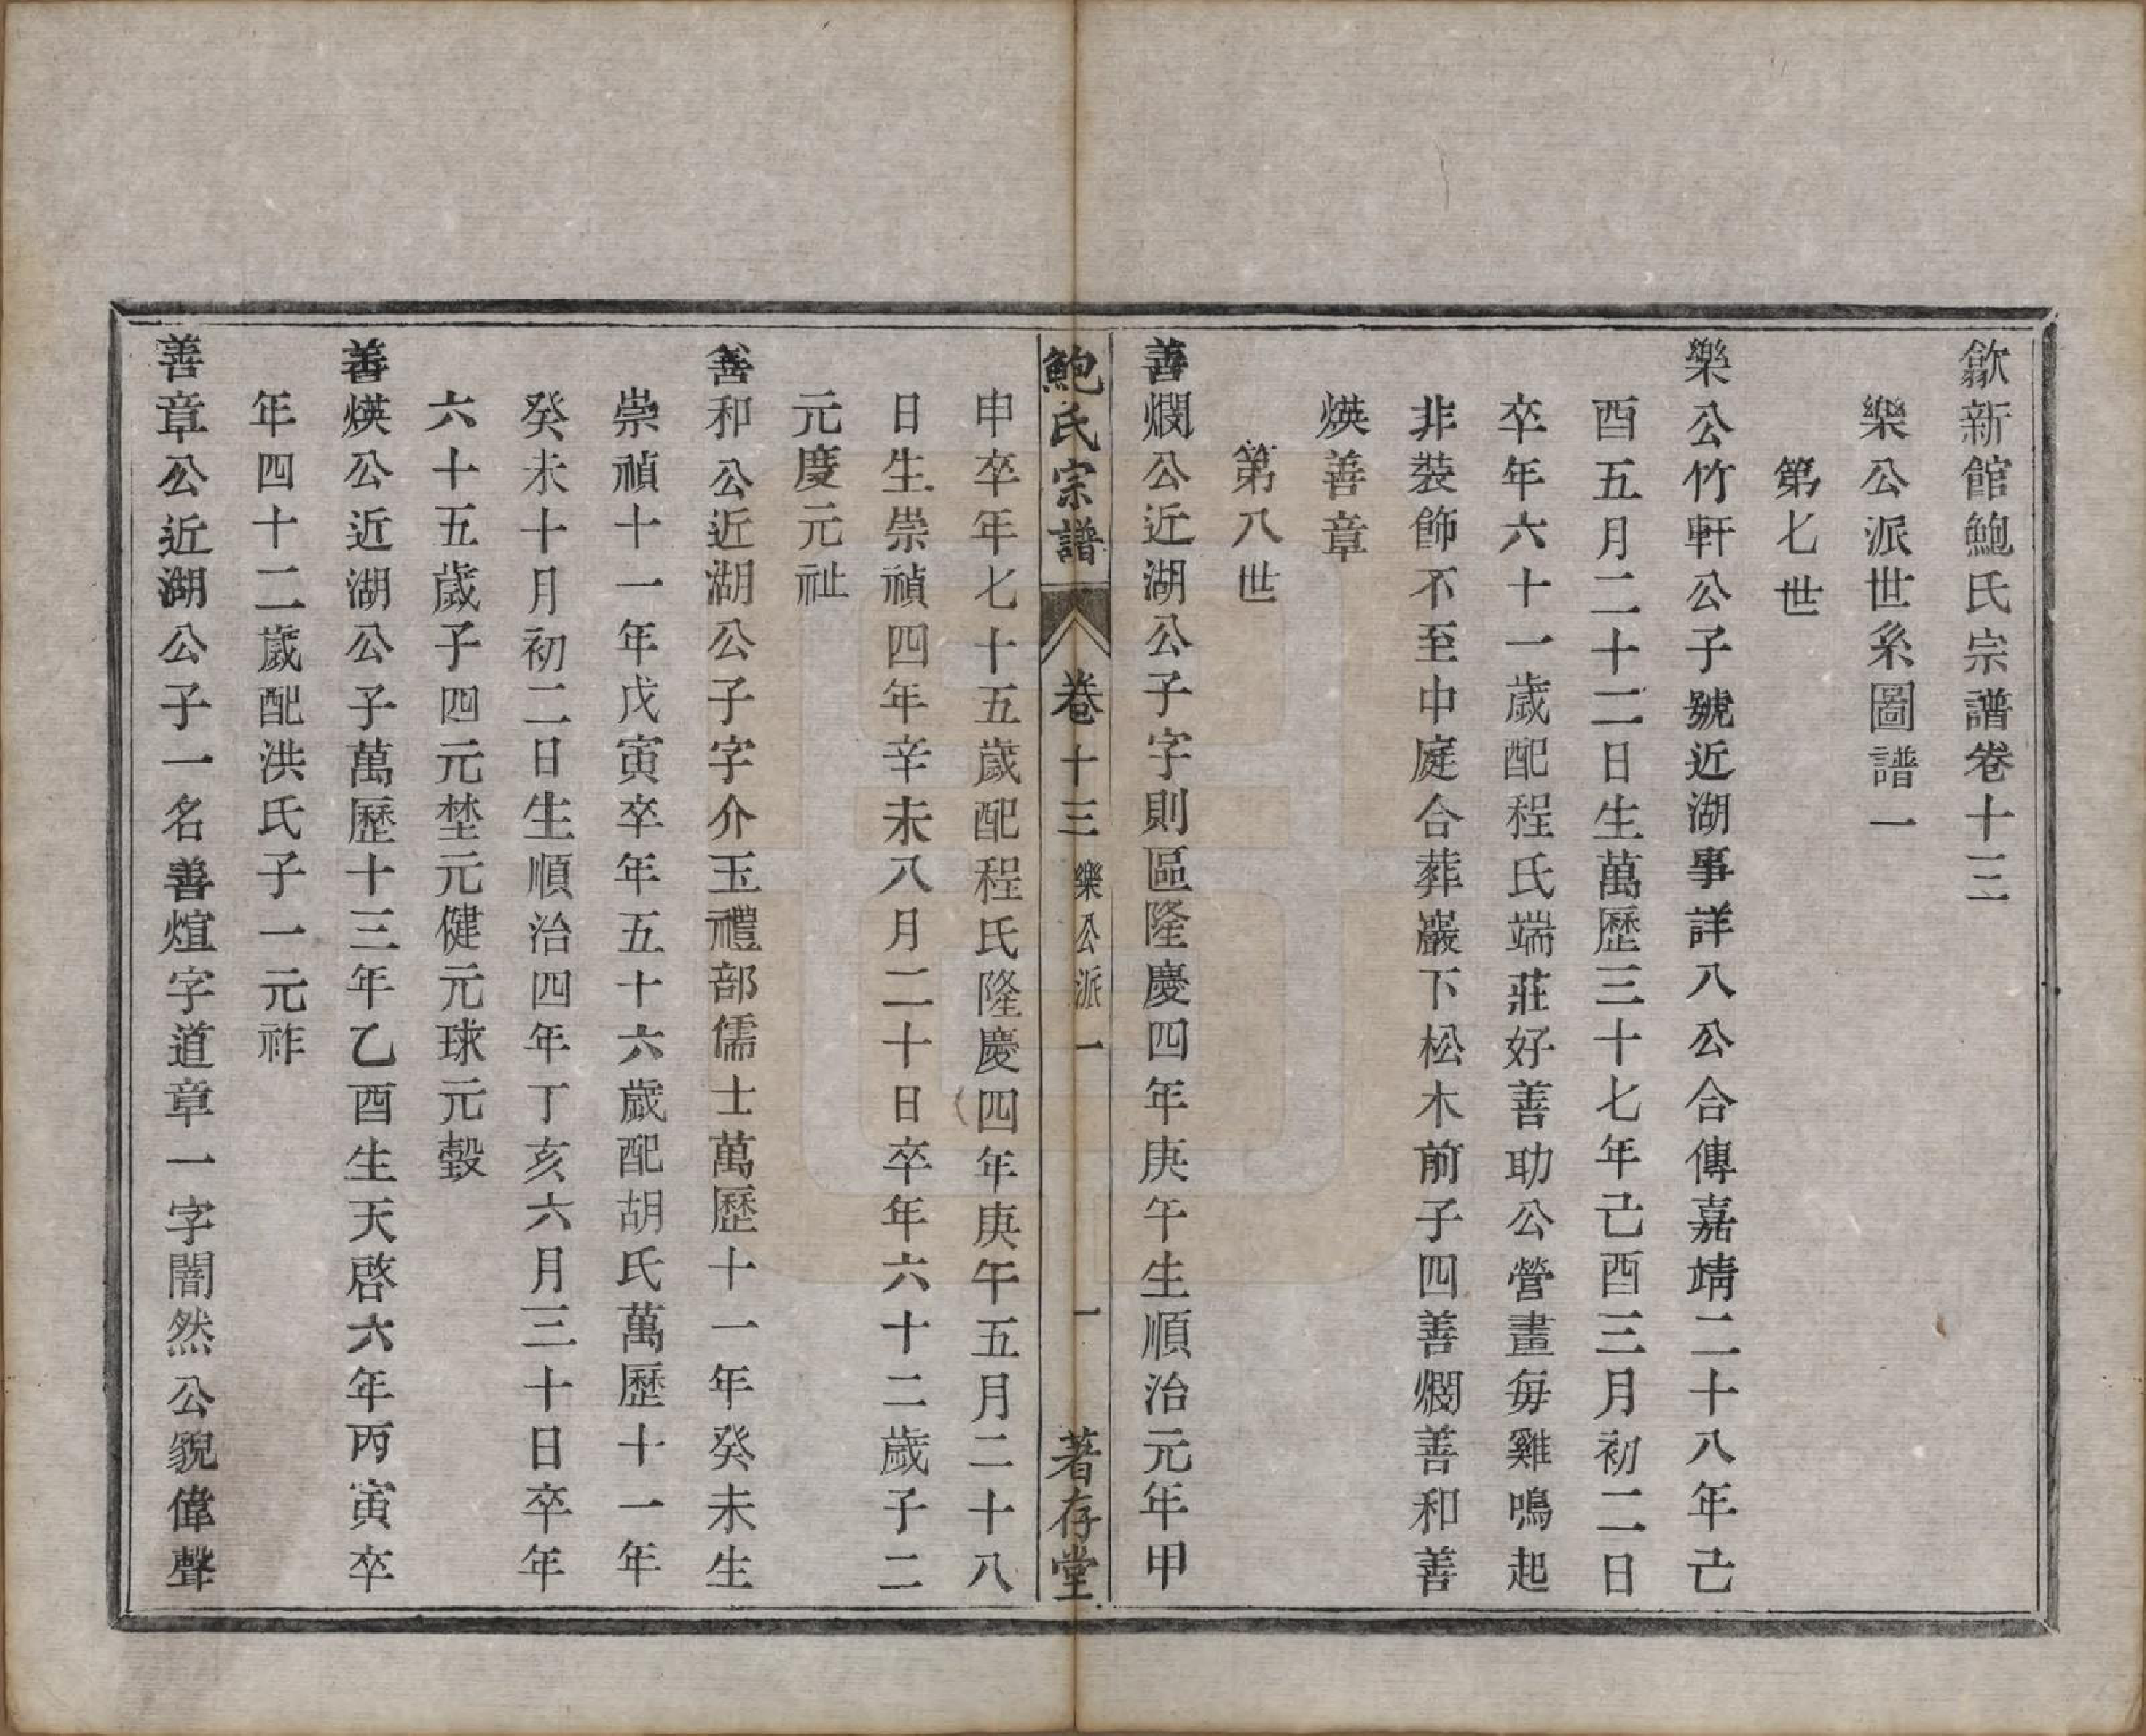 歙新館鮑氏宗譜卷十三
樂公派世系圖譜一
第七世
樂公竹軒公子號近湖事詳八公合傳嘉靖二十八年己
酉五月二十二日生萬歷三十七年己酉三月初二日
卒年六十一歲配程氏端莊好善助公營畫每雞鳴起
非裝飾不至中庭合葬巖下松木前子四善爛善和善
煐善章
第八世
善爛公近湖公子字則區隆慶四年庚午生順治元年甲
鮑氏宗譜 卷十三 樂公派一 一 著存堂
申卒年七十五歲配程氏隆慶四年庚午五月二十八
日生崇禎四年辛未八月二十日卒年六十二歲子二
元慶元祉
善和公近湖公子字介玉禮部儒士萬歷十一年癸未生
崇禎十一年戊寅卒年五十六歲配胡氏萬歷十一年
癸未十月初二日生順治四年丁亥六月三十日卒年
六十五歲子四元埜元健元球元瑴
善煐公近湖公子萬歷十三年乙酉生天啓六年丙寅卒
年四十二歲配洪氏子一元祚
善章公近湖公子一名善煊字道章一字闇然公貌偉聲